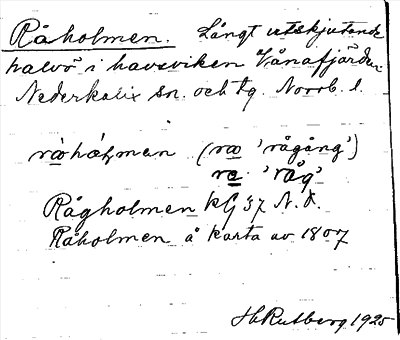 Råholmen. Långt utskjutande
halvö i havsviken Vånafjärden
Nederkalix sn. och tg. Norrb. l.
(ra 'rågång')
ra 'råg'
Rågholmen kG 37 N.K.
Råholmen å karta av 1807
H Rutberg 1925